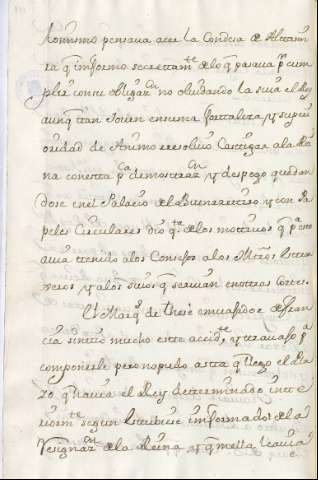 lo mismo pensava acer la Condesa de Altami
ra q̃ informo secrettam.te de lo q̃ pasava p.a cum
plir con su obligaz.on no olvidando la suia el Rey
aunq̃ tan Joven en suma fortaleza, y superi
oridad de Animo resolvio Castigar a la Rei
na con esta p.ca demostraz.on y despego quedan
dose en el Palacio del Buen retiro y con Pa
peles Circulares dio q.ta de los mottivos q̃ p.a esto
avia tenido a los Consejos a los Mtros Estran
xeros y a los suios q̃ servian en otras Cortes.
El Marq.s de embaxador de Fran
cia sintio mucho este accid.te y travajo p.r
componerle pero no pudo asta q̃ llego el Pla
zo q̃ havia el Rey determinado intte
riorm.te segun estubiese informado de la
Resignaz.on de la Reina y q̃ mella le avia